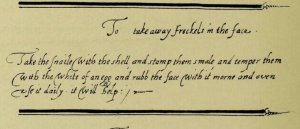 To take away freckels in the face.
Take the snailes with the shell and stamp them smale and temper them
with the white of an egg and rubb the face with it morne and even
use it daily it will help: